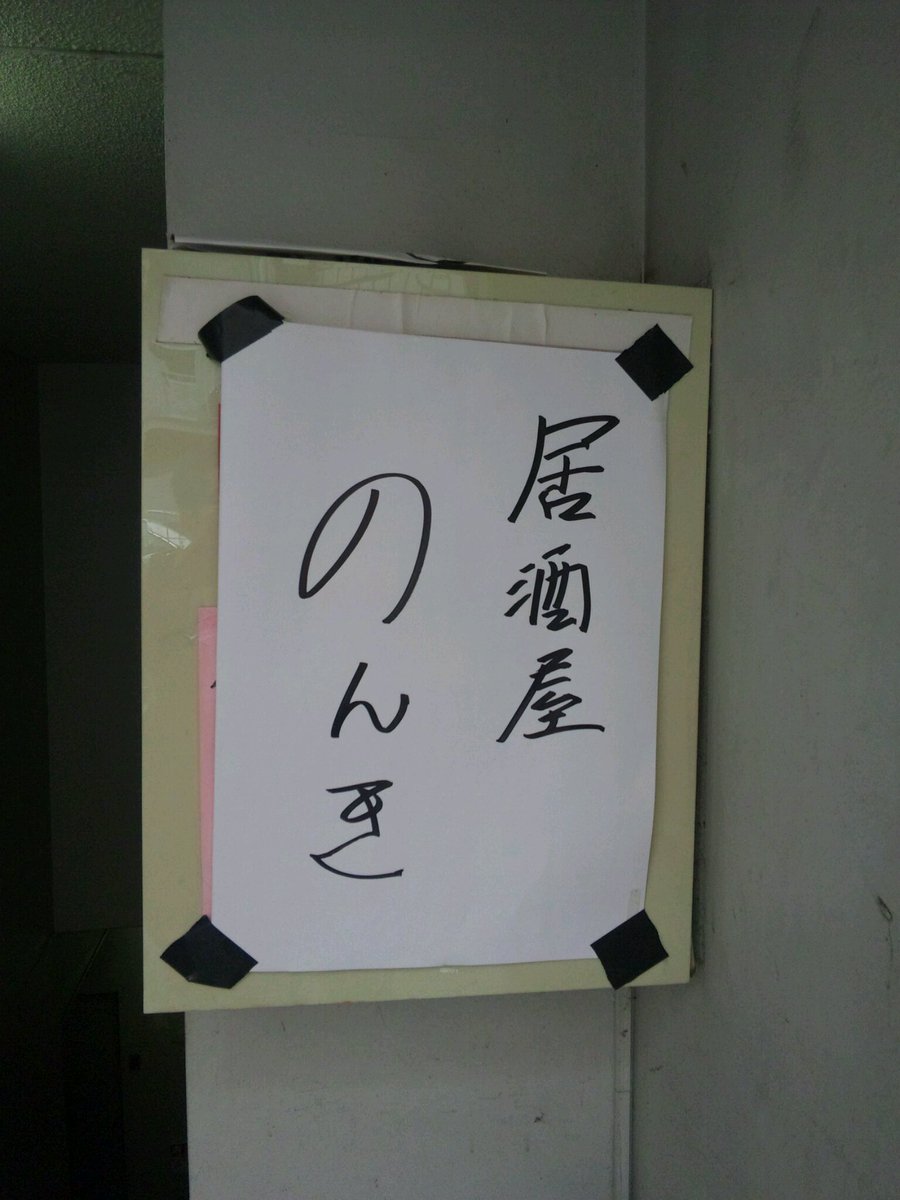 居酒屋
のんき